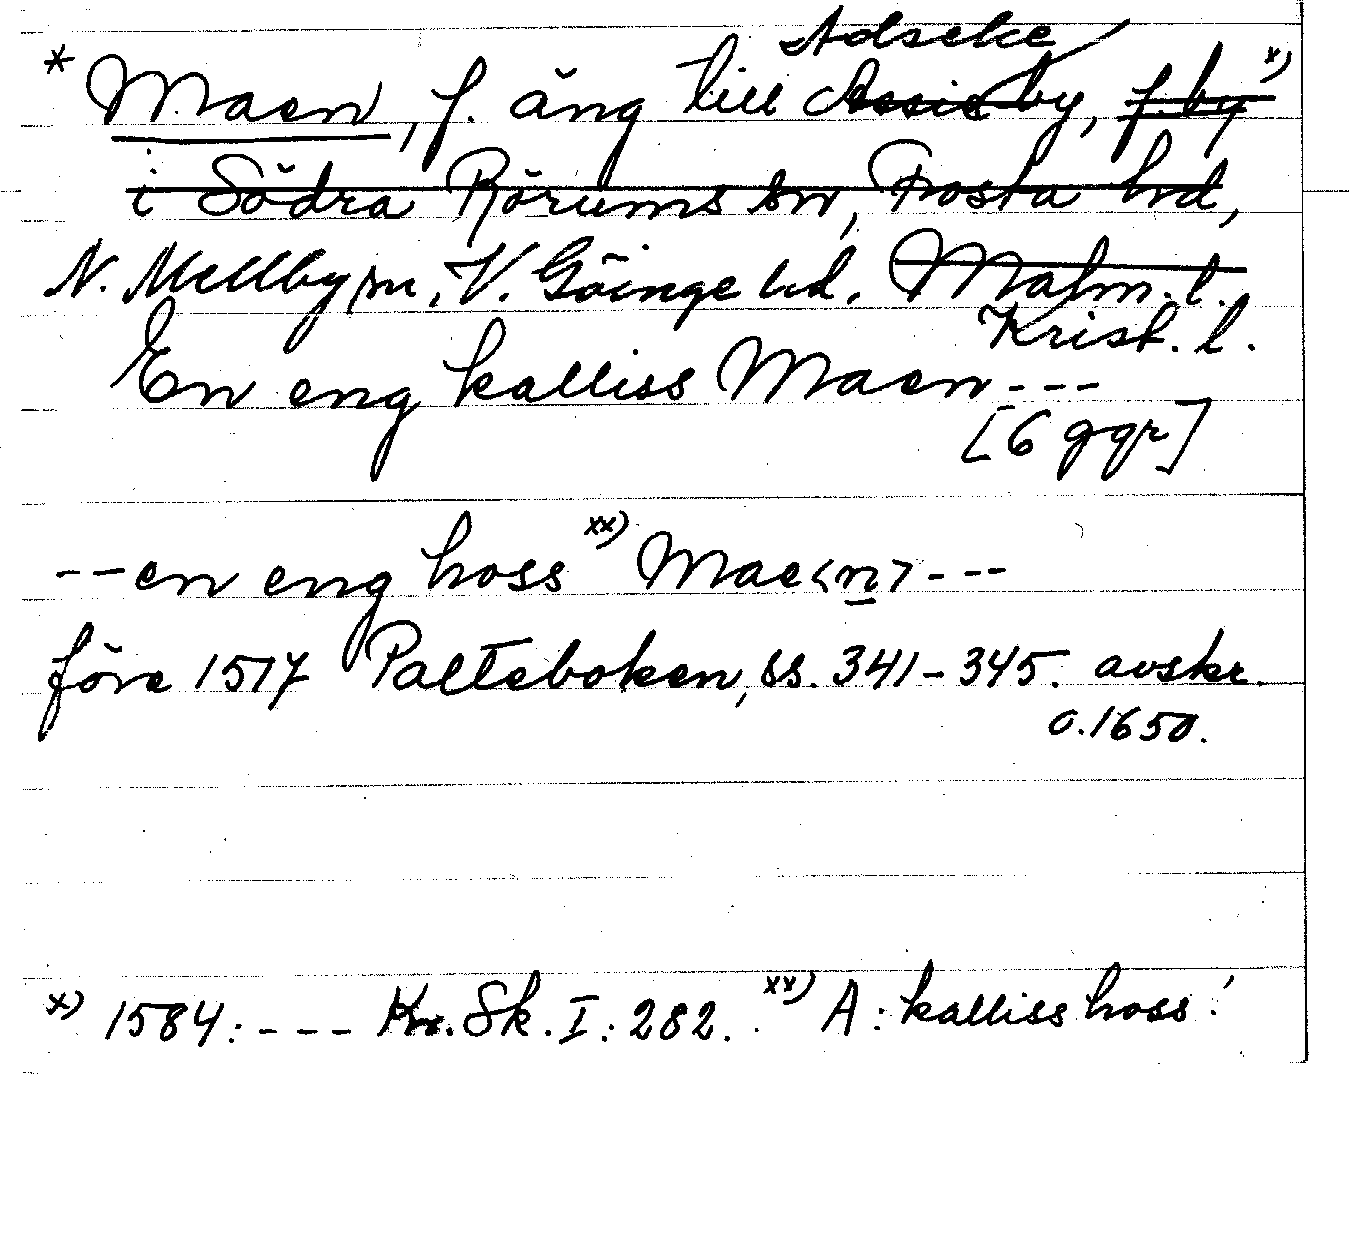 Adseke
* Maen, f. äng till Assie by, f. by x)
i Södra Rörums sn, Frosta hd,
N. Mellby sn, V. Göinge hd. Malm. l.
Krist. l.
En eng kalliss Maen ---
[6 ggr]
--en eng hoss xx) Mae<n> ---
före 1517 Palteboken, ss. 341-345. avskr.
o. 1650.
x) 1584: --- Kr. Sk. I: 282. xx) A: kalliss hoss!